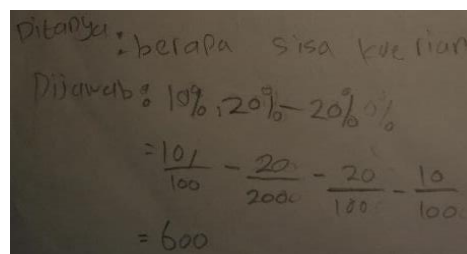 Ditanya : berapa sisa kue rian
Dijawab : 10%, 20% - 20%
= 10/100 - 20/2000 - 20/100 - 10/100
= 600